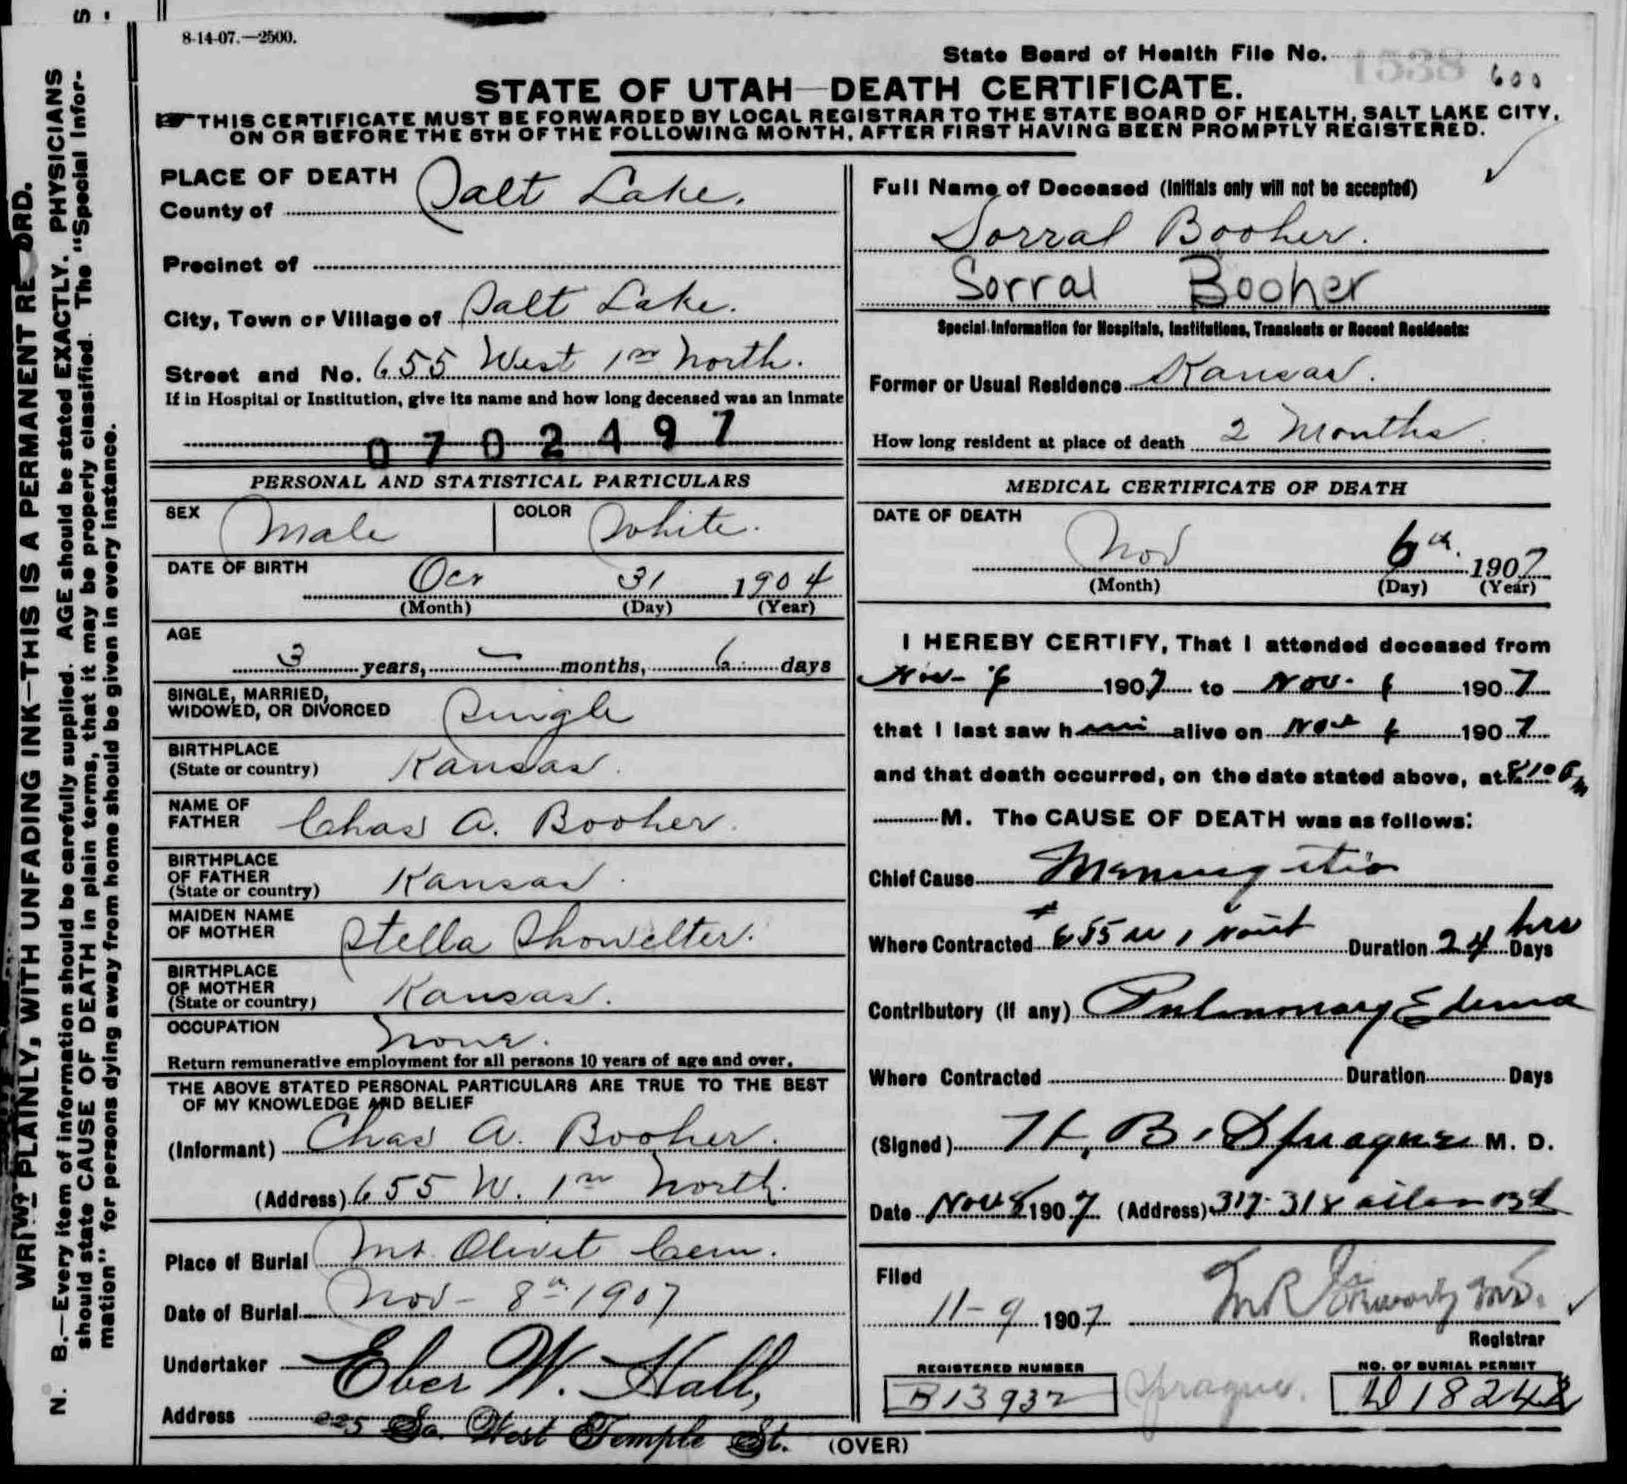 8-14-07.—2500.
State Board of Health File No. 1538 600
STATE OF UTAH—DEATH CERTIFICATE.
THIS CERTIFICATE MUST BE FORWARDED BY LOCAL REGISTRAR TO THE STATE BOARD OF HEALTH, SALT LAKE CITY,
ON OR BEFORE THE 5TH OF THE FOLLOWING MONTH, AFTER FIRST HAVING BEEN PROMPTLY REGISTERED.
PLACE OF DEATH
County of Salt Lake.
Precinct of
City, Town or Village of Salt Lake.
Street and No. 655 West 1st North.
If in Hospital or Institution, give its name and how long deceased was an inmate
0702497
PERSONAL AND STATISTICAL PARTICULARS
SEX Male COLOR White.
DATE OF BIRTH Oct 31 1904
(Month) (Day) (Year)
AGE
3 years, — months, 6 days
SINGLE, MARRIED,
WIDOWED, OR DIVORCED Single
BIRTHPLACE
(State or country) Kansas.
NAME OF
FATHER Chas A. Booher.
BIRTHPLACE
OF FATHER
(State or country) Kansas.
MAIDEN NAME
OF MOTHER Stella Showelter.
BIRTHPLACE
OF MOTHER
(State or country) Kansas.
OCCUPATION None.
Return remunerative employment for all persons 10 years of age and over.
THE ABOVE STATED PERSONAL PARTICULARS ARE TRUE TO THE BEST
OF MY KNOWLEDGE AND BELIEF
(Informant) Chas A. Booher.
(Address) 655 W. 1st North.
Place of Burial Mt. Olivet Cem.
Date of Burial Nov - 8th 1907
Undertaker Eber W. Hall,
Address 225 So. West Temple St.
(OVER)
Full Name of Deceased (Initials only will not be accepted)
Sorral Booher.
Sorral Booher
Special Information for Hospitals, Institutions, Transients or Recent Residents:
Former or Usual Residence Kansas.
How long resident at place of death 2 Months.
MEDICAL CERTIFICATE OF DEATH
DATE OF DEATH
Nov 6th. 1907
(Month) (Day) (Year)
I HEREBY CERTIFY, That I attended deceased from
Nov - 6 1907 to Nov. 6 1907
that I last saw him alive on Nov 6 1907
and that death occurred, on the date stated above, at 8:10 Pm
M. The CAUSE OF DEATH was as follows:
Chief Cause Meningitis
Where Contracted # 655 W 1 North Duration 24 hrs Days
Contributory (if any) Pulmonary Edema
Where Contracted Duration Days
(Signed) H. B. Sprague M. D.
Date Nov 8 1907 (Address) 317-318 Bld
Filed
11-9 1907
Registrar
REGISTERED NUMBER
B13932
Sprague.
NO. OF BURIAL PERMIT
18242
WRITE PLAINLY, WITH UNFADING INK—THIS IS A PERMANENT RECORD.
N. B.—Every item of information should be carefully supplied. AGE should be stated EXACTLY. PHYSICIANS
should state CAUSE OF DEATH in plain terms, that it may be properly classified. The "Special Infor-
mation" for persons dying away from home should be given in every instance.